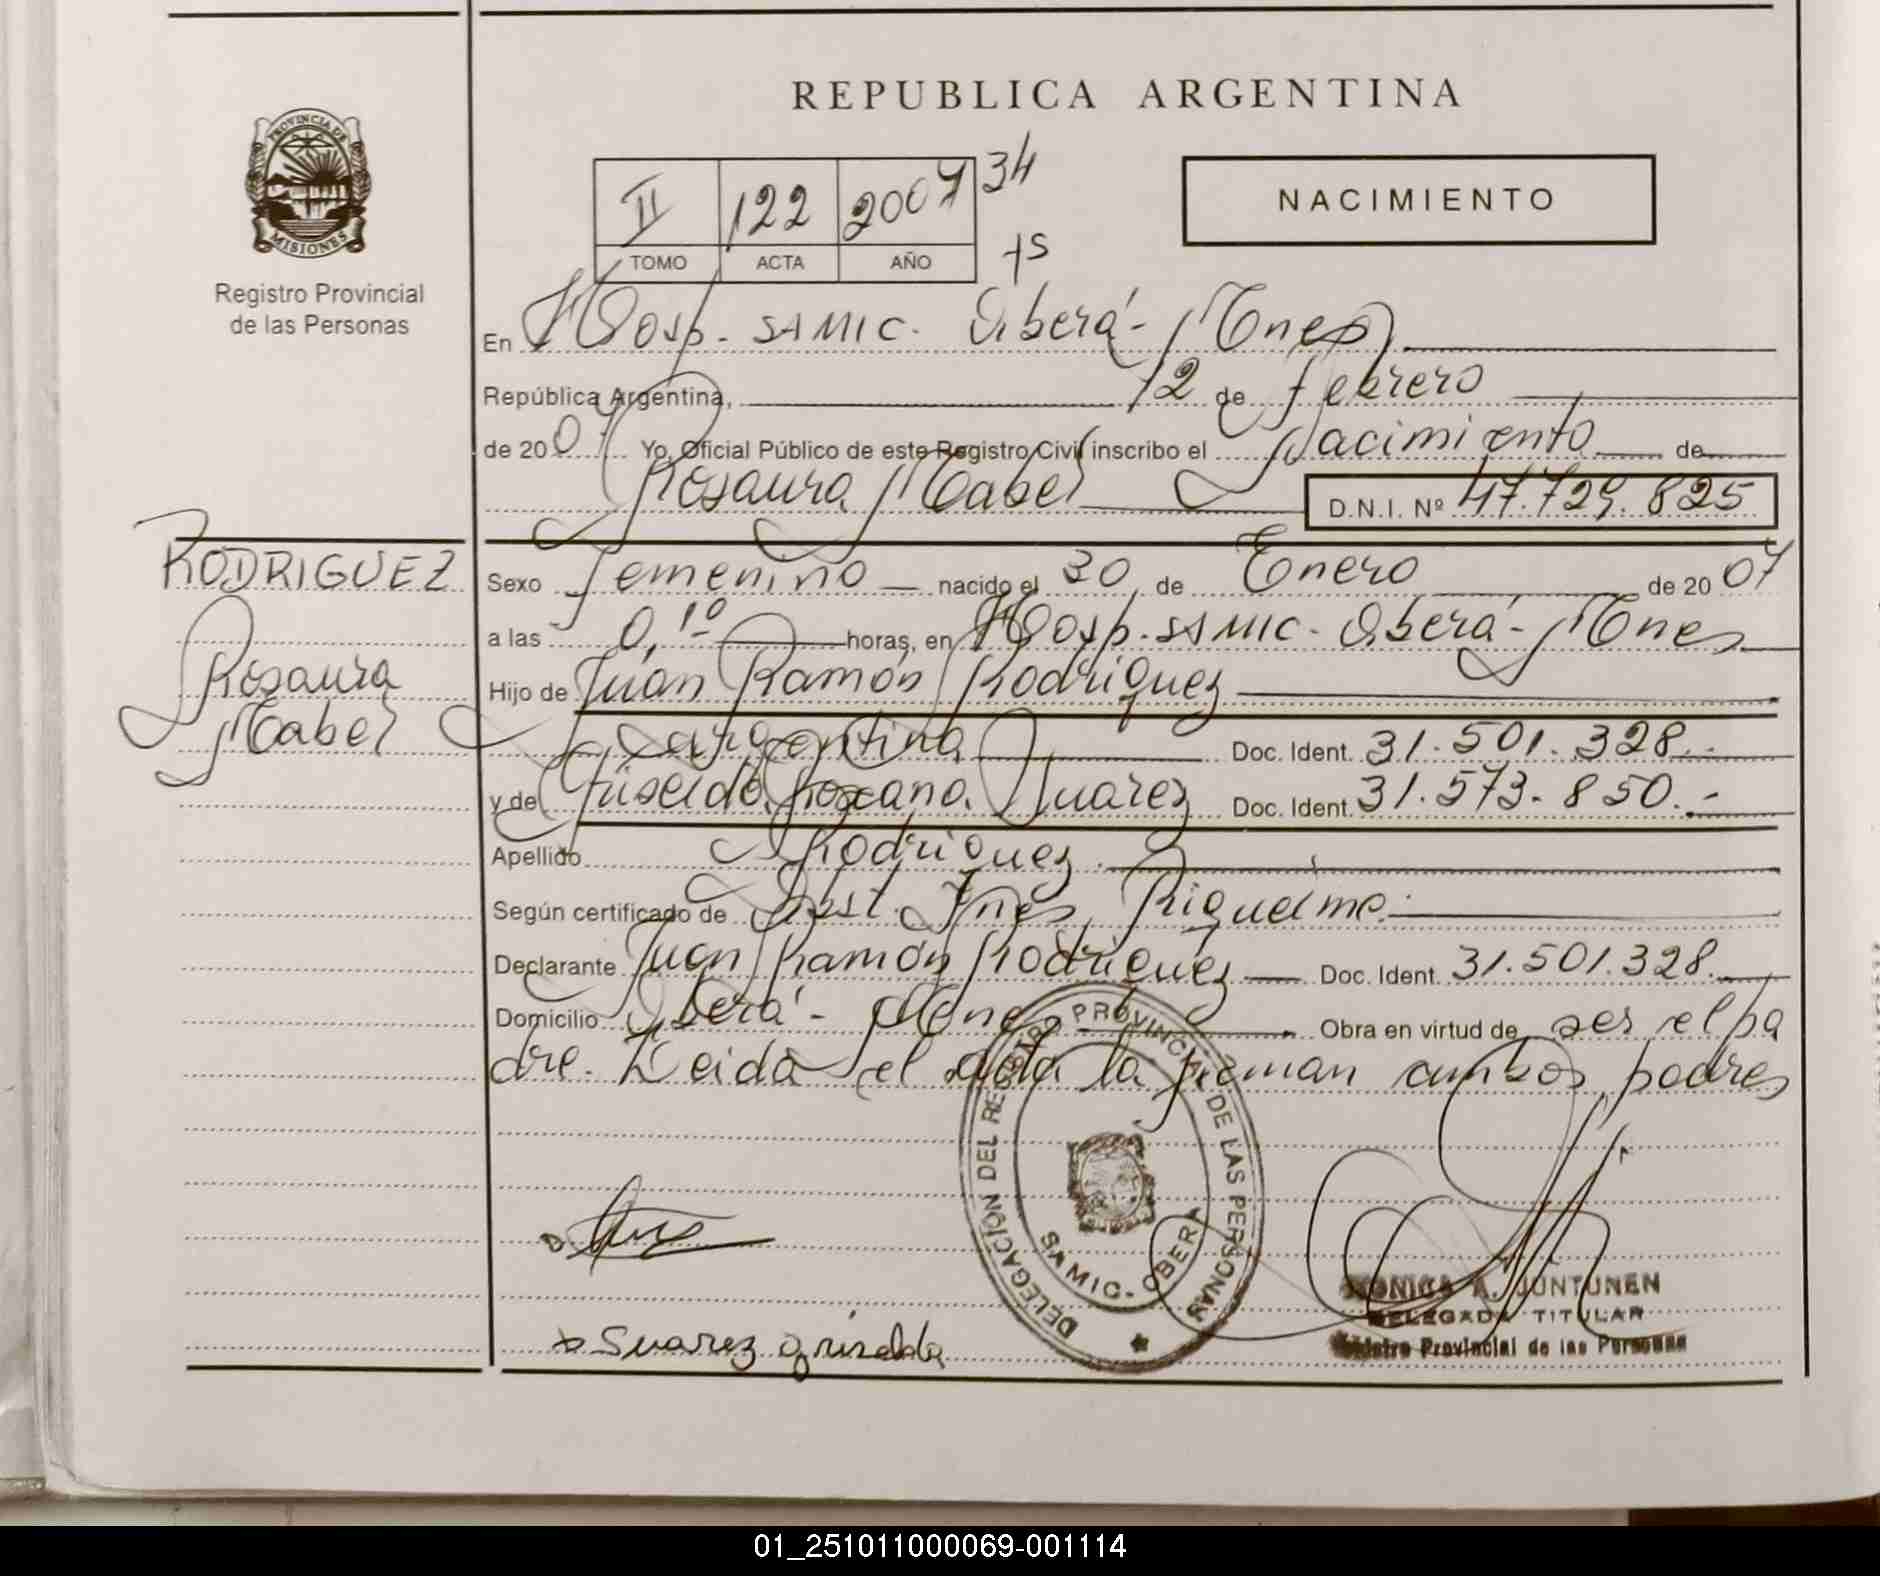 REPUBLICA ARGENTINA
PROVINCIA DE
MISIONES
Registro Provincial
de las Personas
II 122 2007 34
TOMO ACTA AÑO
NACIMIENTO
En Hosp. SAMIC. Oberá - Mnes
República Argentina, 12 de Febrero
de 2007 Yo, Oficial Público de este Registro Civil inscribo el Nacimiento de
Rosaura Mabel D.N.I. Nº 47.729.825
RODRIGUEZ
Rosaura
Mabel
Sexo femenino nacido el 30 de Enero de 2007
a las 0,10 horas, en Hosp. SAMIC - Oberá - Mnes
Hijo de Juan Ramón Rodriguez
argentina Doc. Ident. 31.501.328.-
y de Griselda Roxana Suarez Doc. Ident. 31.573.850.-
Apellido Rodriguez
Según certificado de Obst. Ines Riquelme.
Declarante Juan Ramón Rodriguez Doc. Ident. 31.501.328.
Domicilio Oberá - Mnes Obra en virtud de ser el pa
dre. Leida el acta la firman ambos padres
DELEGACIÓN DEL REGISTRO PROVINCIAL DE LAS PERSONAS
SAMIC - OBERA
Suarez griselda
MONICA A. JUNTUNEN
DELEGADA TITULAR
Registro Provincial de las Personas
01_251011000069-001114